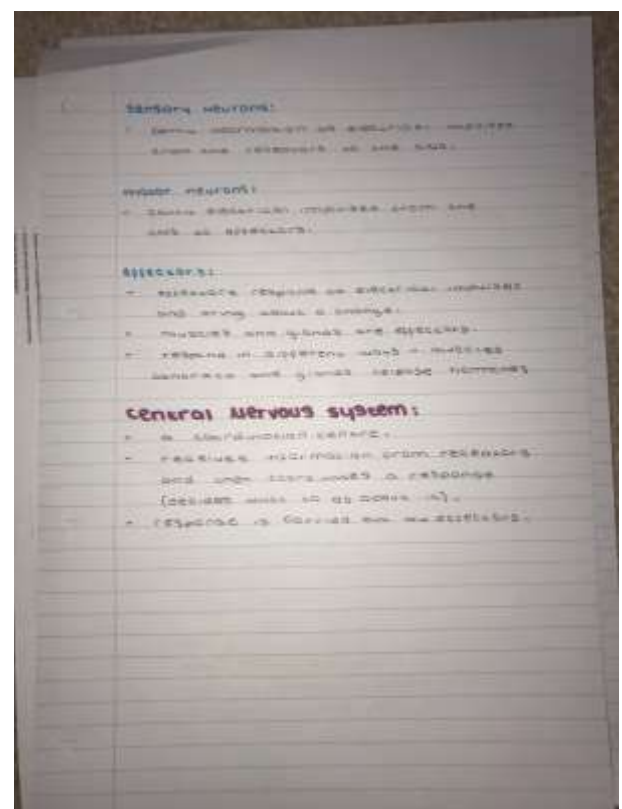 Sensory neurons:
• carry information as electrical impulses
from the receptors to the CNS.
motor neurons:
• carry electrical impulses from the
CNS to effectors.
effectors:
• effectors respond to electrical impulses
and bring about a change.
• muscles and glands are effectors.
• respond in different ways - muscles
contract and glands release hormones
Central Nervous System:
• a coordination centre.
• receives information from receptors
and then coordinates a response
(decides what to do about it).
• response is carried out by effectors.